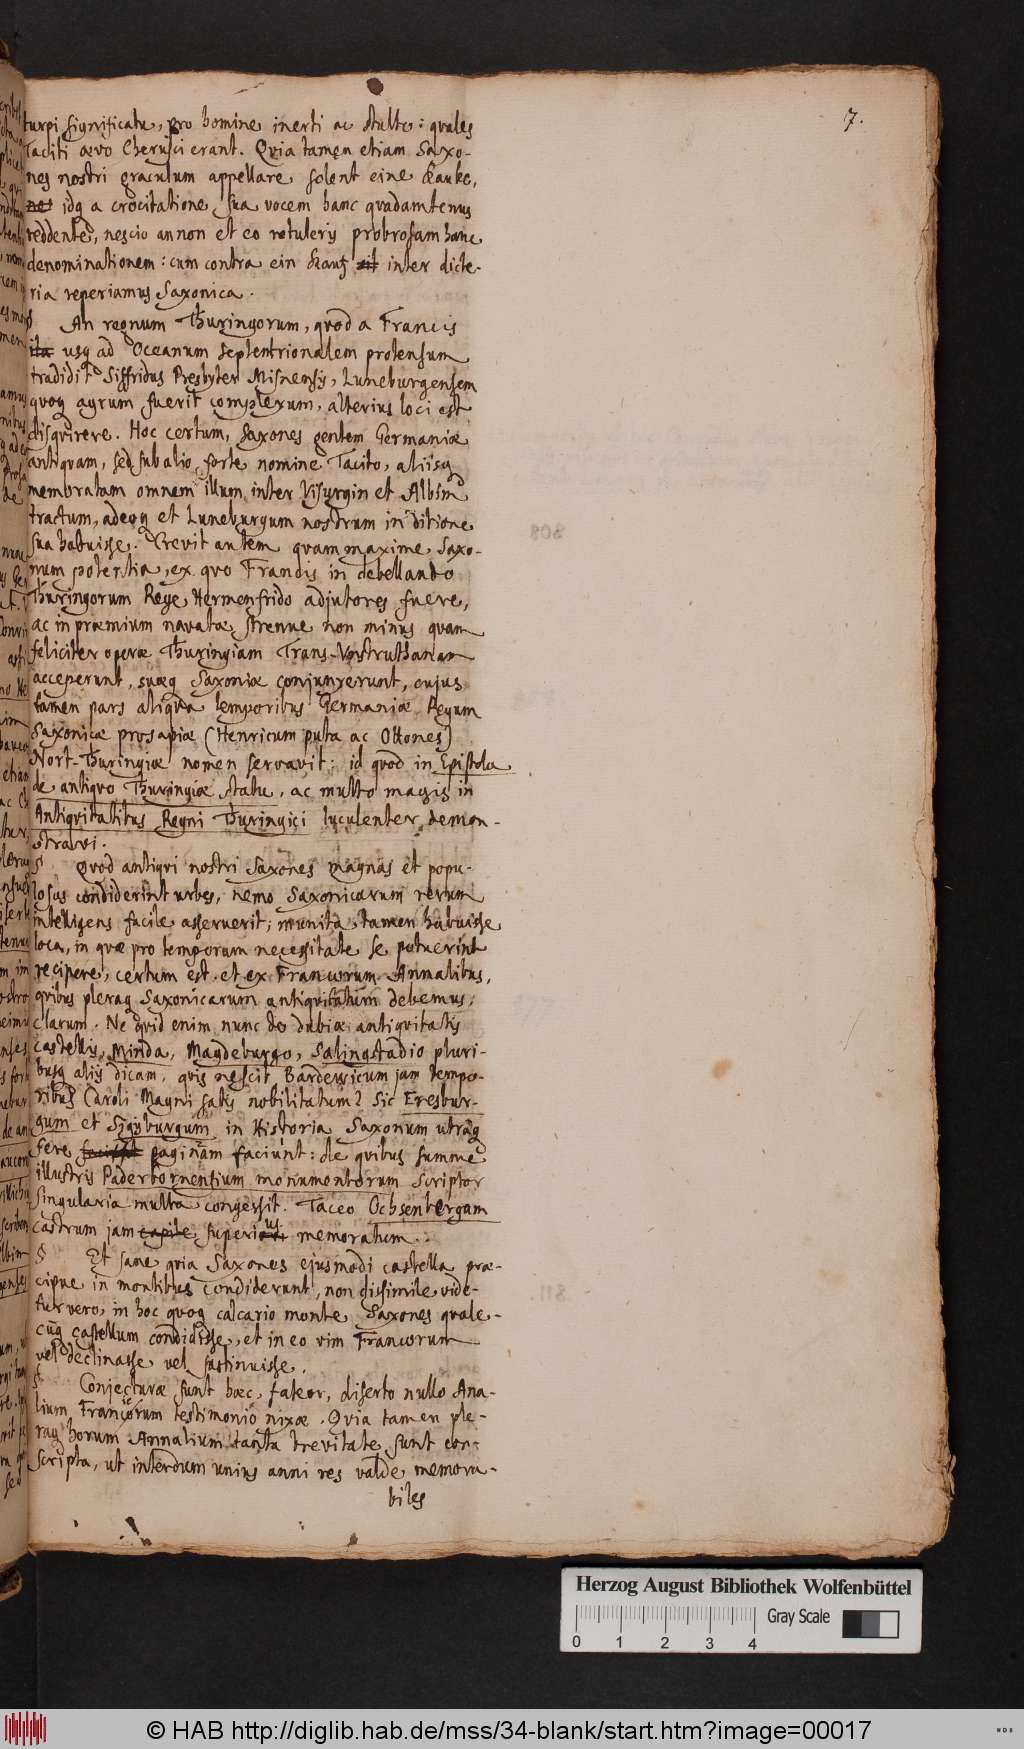 7.
turpi significatu, pro homine inerti ac stulto: quales
Taciti aevo Cherusci erant. Quia tamen etiam Saxo-
nes nostri graculum appellare solent eine Kauke,
idq a crocitatione sua vocem hanc quadamtenus
reddente, nescio annon et eo retulerij probrosam hanc
denominationem: cum contra ein Kautz inter dicte-
ria reperiamus Saxonica.
§ An regnum Thuringorum, quod a Francis
ita usq ad Oceanum septentrionalem protensum
tradidit Siffridus Presbyter Misnensis, Luneburgensem
quoq agrum fuerit complexum, alterius loci est
disquirere. Hoc certum, Saxones gentem Germaniæ
antiquam, sed sub alio forte nomine Tacito, aliisq
memoratam omnem illum inter Visurgin et Albim
tractum, adeoq et Luneburgum nostrum in ditione
sua habuisse. Crevit autem quam maxime Saxo-
num potentia, ex quo Francis in debellando
Thuringorum Rege Hermenfrido adjutores fuere,
ac in præmium navatæ strenue non minus quam
feliciter operæ Thuringiam Trans-Vnstruthanam
acceperunt, suæq Saxoniæ conjunxerunt, cujus
tamen pars aliqua temporibus Germaniæ Regum
Saxonicæ prosapiæ (Henricum puta ac Ottones)
Nort-Thuringiæ nomen servavit: id quod in Epistola
de antiquo Thuringiæ statu, ac multo magis in
Antiquitatibus Regni Thuringici luculenter demon-
stravi.
§ Quod antiqui nostri Saxones magnas et popu-
losas condiderint urbes, nemo Saxonicarum rerum
intelligens facile asseruerit; munita tamen habuisse
loca, in quæ pro temporum necessitate se potuerint
recipere, certum est et ex Francorum Annalibus,
quibus pleraq Saxonicarum antiquitatum debemus,
clarum. Ne quid enim nunc de dubiæ antiquitatis
castellis, Minda, Magdeburgo, Salingstadio pluri-
busq aliis dicam, quis nescit Bardewicum jam tempo-
ribus Caroli Magni satis nobilitatum? Sic Eresbur-
gum et Sigiburgum in Historia Saxonum utramq
fere paginam faciunt: de quibus summe
illustris Paderbornensium monumentorum Scriptor
singularia multa congessit. Taceo Ochsenbergam
castrum jam capite superius memoratum.
§ Et sane quia Saxones ejusmodi castella præ-
cipue in montibus condiderunt, non dissimile vide-
tur vero, in hoc quoq calcario monte Saxones quale-
cunq castellum condidisse, et in eo vim Francorum
vel declinasse vel sustinuisse.
§ Conjecturæ sunt hæc, fateor, diserto nullo Ana-
lium Francorum testimonio nixæ. Quia tamen ple-
raq horum Annalium tanta brevitate sunt con-
scripta, ut interdum unius anni res valde memora-
biles
Herzog August Bibliothek Wolfenbüttel
0 1 2 3 4 Gray Scale
© HAB http://diglib.hab.de/mss/34-blank/start.htm?image=00017